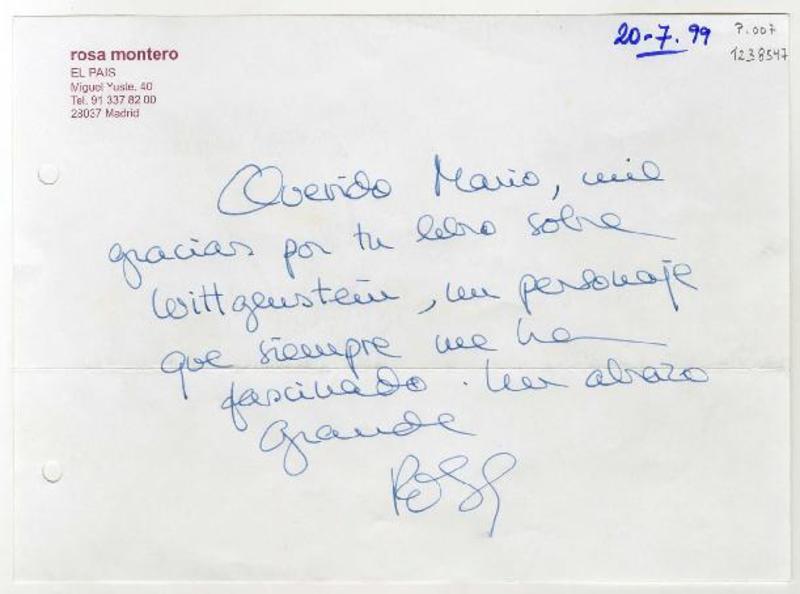 rosa montero
EL PAIS
Miguel Yuste, 40
Tel. 91 337 82 00
28037 Madrid
20-7.99
P.007
1238547
Querido Mario, mil
gracias por tu libro sobre
Wittgenstein, un personaje
que siempre me ha
fascinado. Un abrazo
grande
Rosa